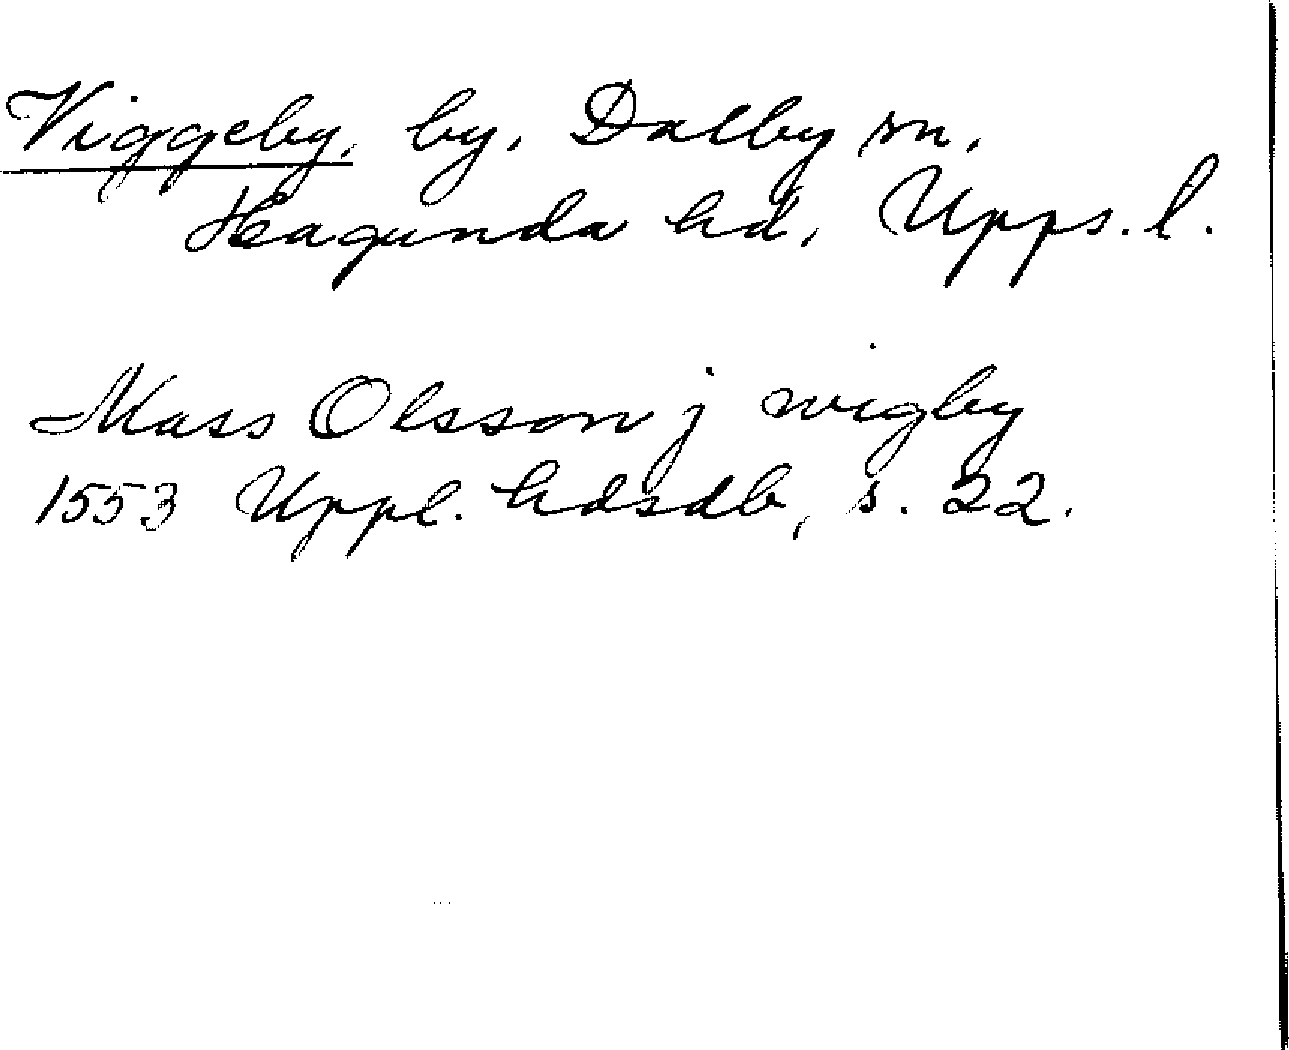 Viggeby, by, Dalby sn,
Hagunda hd, Upps. l.
Mass Olsson j wigby
1553 Uppl. hdsdb, s. 22.